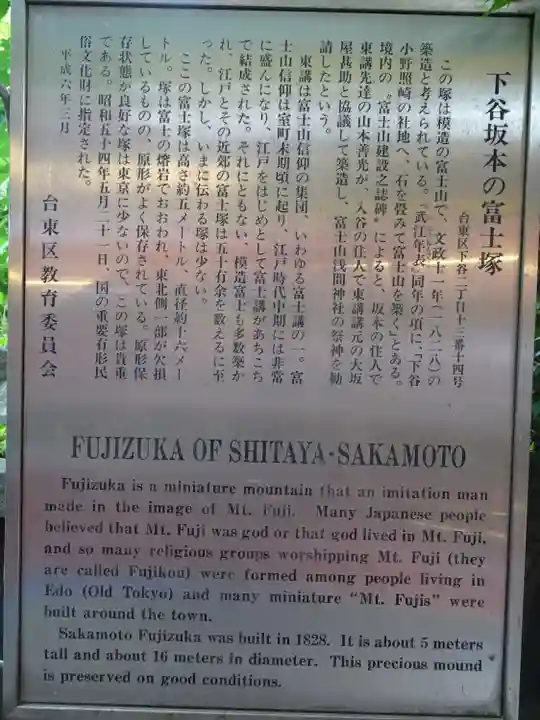 下谷坂本の富士塚
台東区下谷二丁目十三番十四号
この塚は模造の富士山で、文政十一年(一八二八)の
築造と考えられている。『武江年表』同年の項に、「下谷
小野照崎の社地へ、石を畳みて富士山を築く」とある。
境内の〝富士山建設之誌碑〟によると、坂本の住人で
東講先達の山本善光が、入谷の住人で東講講元の大坂
屋甚助と協議して築造し、富士山浅間神社の祭神を勧
請したという。
東講は富士山信仰の集団、いわゆる富士講の一。富
士山信仰は室町末期頃に起り、江戸時代中期には非常
に盛んになり、江戸をはじめとして富士講があちこち
で結成された。それにともない、模造富士も多数築か
れ、江戸とその近郊の富士塚は五十有余を数えるに至
った。しかし、いまに伝わる塚は少ない。
ここの富士塚は高さ約五メートル、直径約十六メー
トル。塚は富士の熔岩でおおわれ、東北側一部が欠損
しているものの、原形がよく保存されている。原形保
存状態が良好な塚は東京に少ないので、この塚は貴重
である。昭和五十四年五月二十一日、国の重要有形民
俗文化財に指定された。
平成六年三月
台東区教育委員会
FUJIZUKA OF SHITAYA·SAKAMOTO
Fujizuka is a miniature mountain that an imitation man
made in the image of Mt. Fuji. Many Japanese people
believed that Mt. Fuji was god or that god lived in Mt. Fuji,
and so many religious groups worshipping Mt. Fuji (they
are called Fujikou) were formed among people living in
Edo (Old Tokyo) and many miniature “Mt. Fujis” were
built around the town.
Sakamoto Fujizuka was built in 1828. It is about 5 meters
tall and about 16 meters in diameter. This precious mound
is preserved on good conditions.